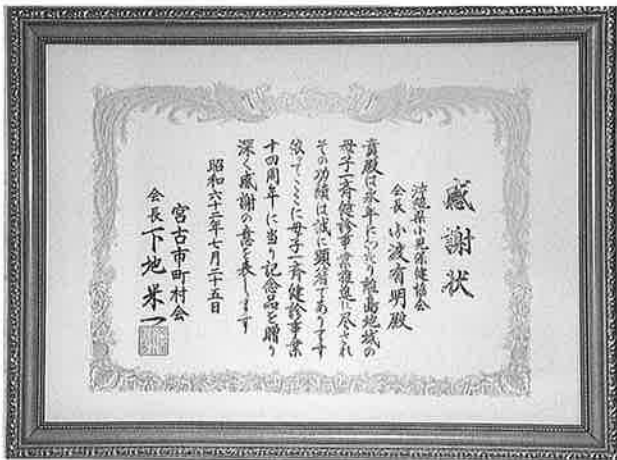 感謝状
沖縄県小児保健協会
会長 小渡有明殿
貴殿は永年にわたり離島地域の
母子一斉健診事業推進に尽され
その功績は誠に顕著であります
依ってここに母子一斉健診事業
十四周年に当り記念品を贈り
深く感謝の意を表します
昭和六十二年七月二十五日
宮古市町村会
会長 下地米一